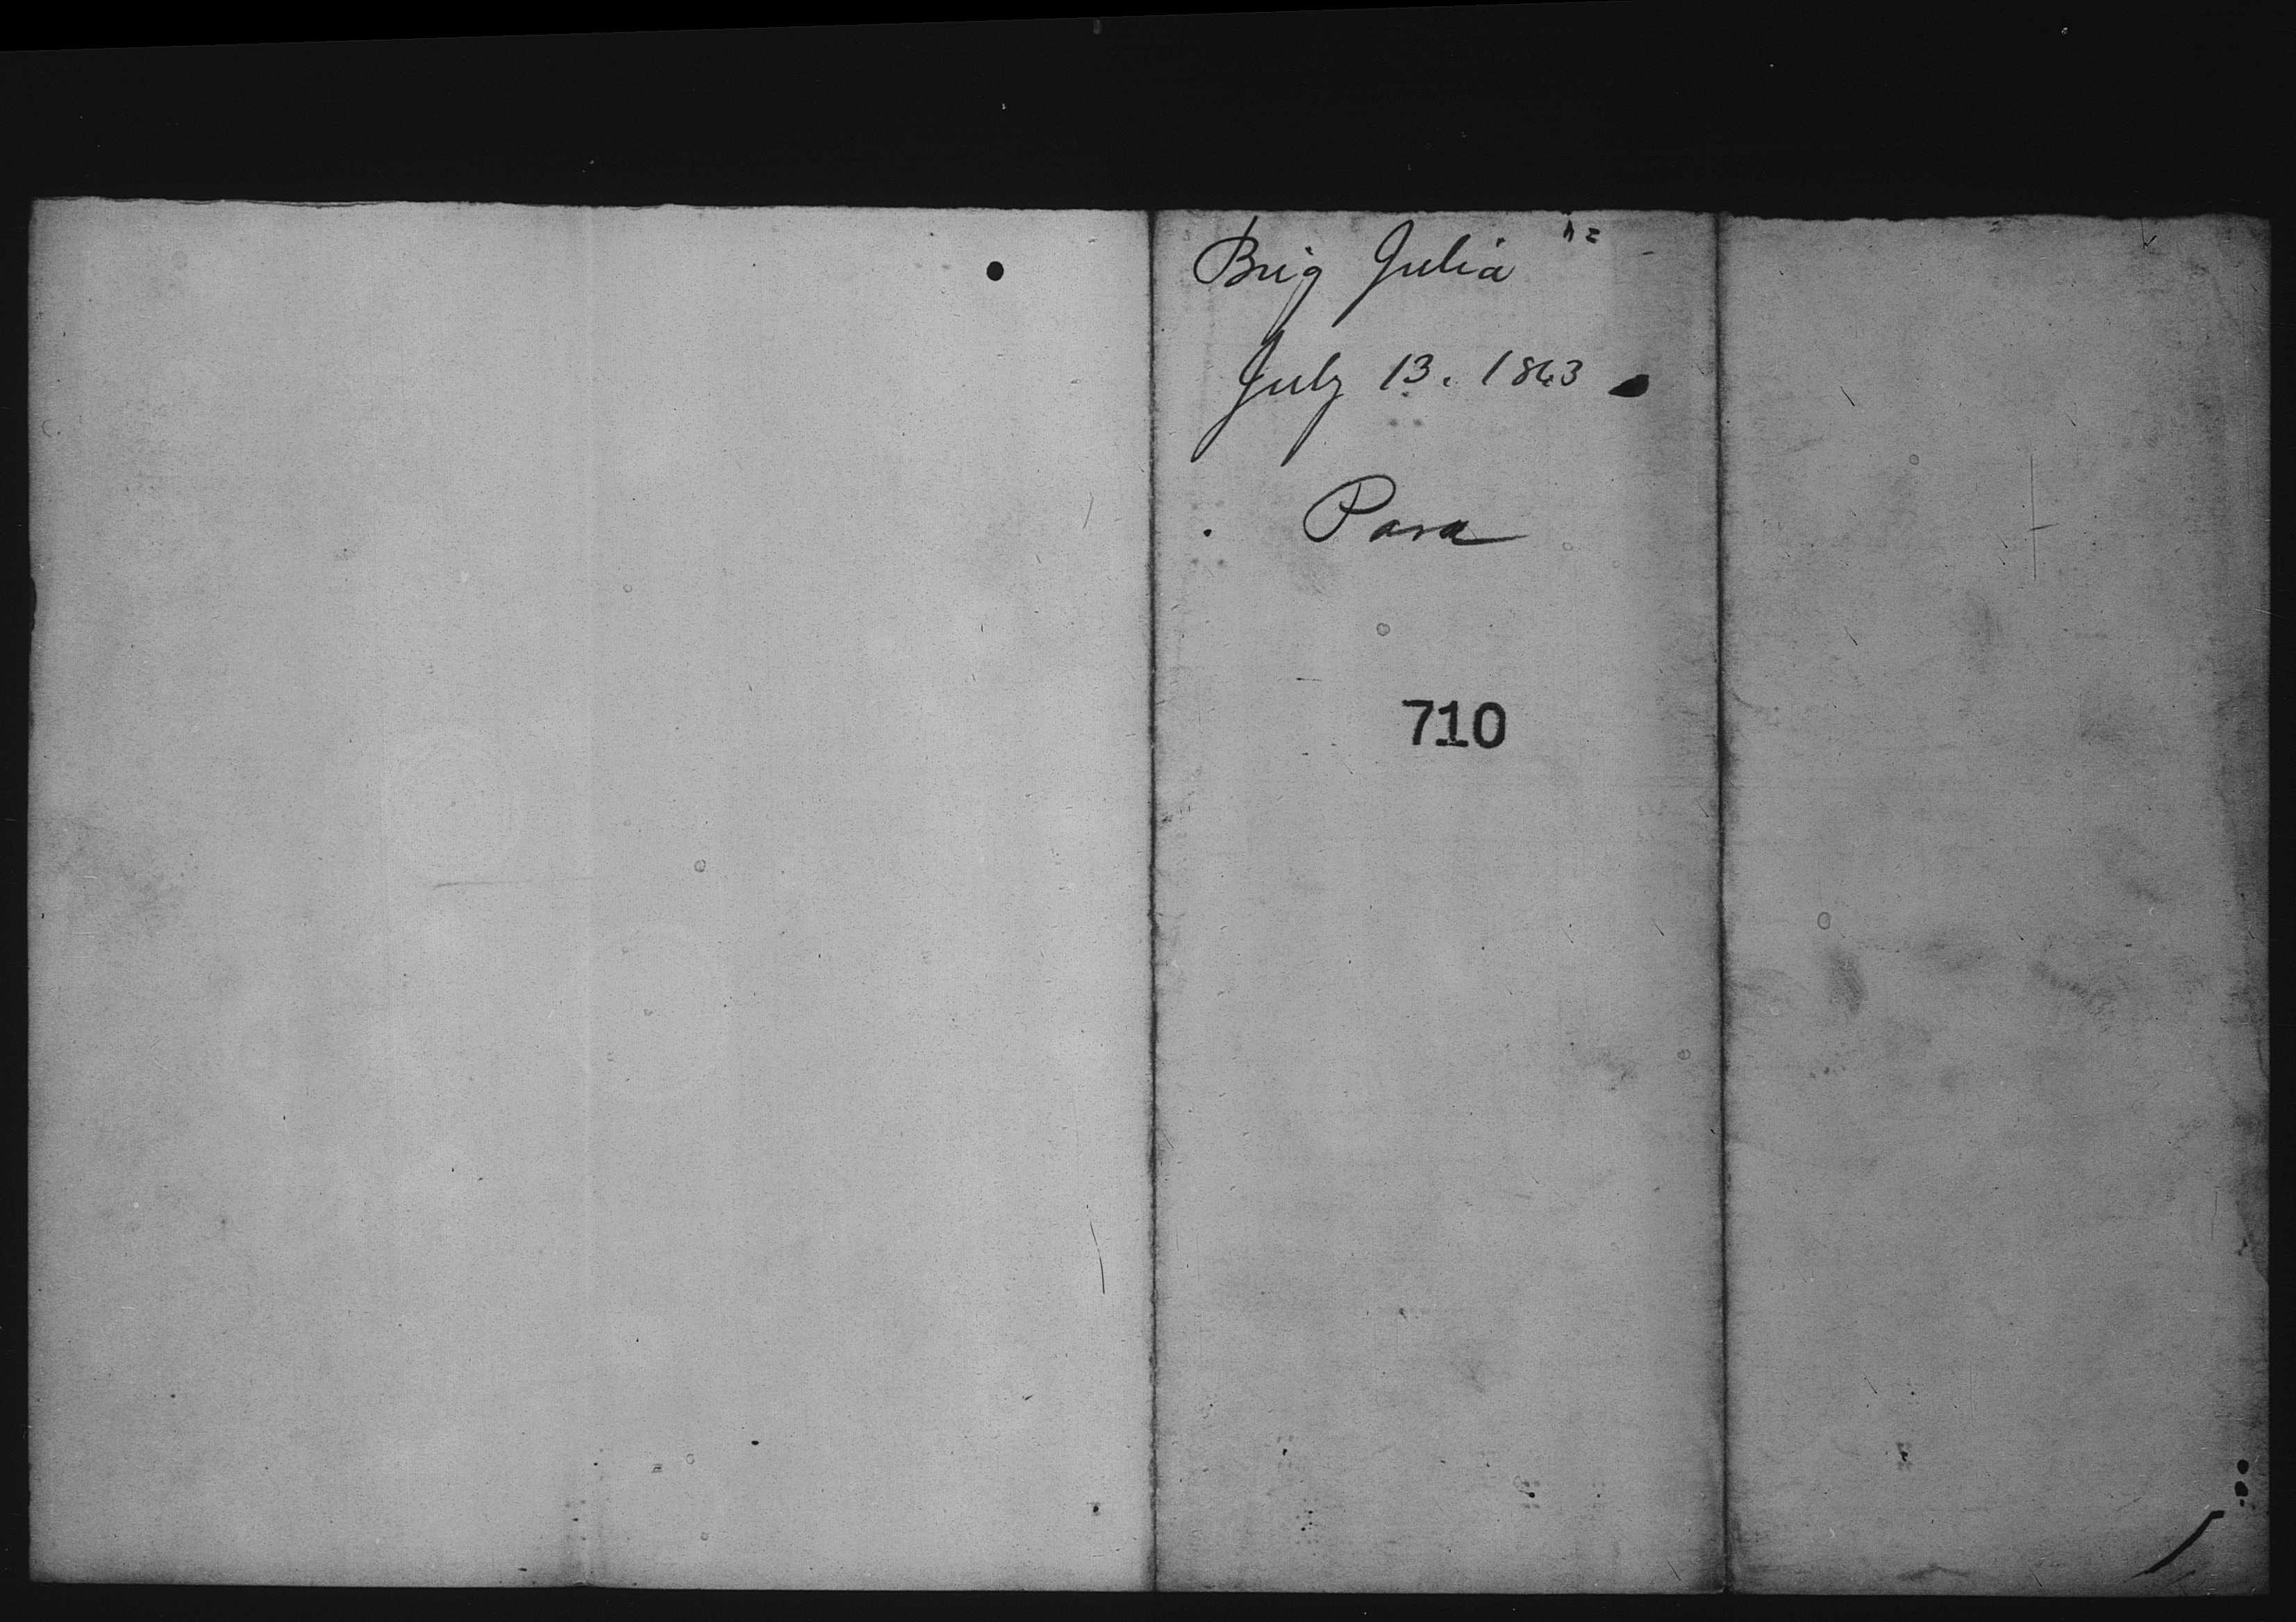 Brig Julia
July 13. 1863
Para
710